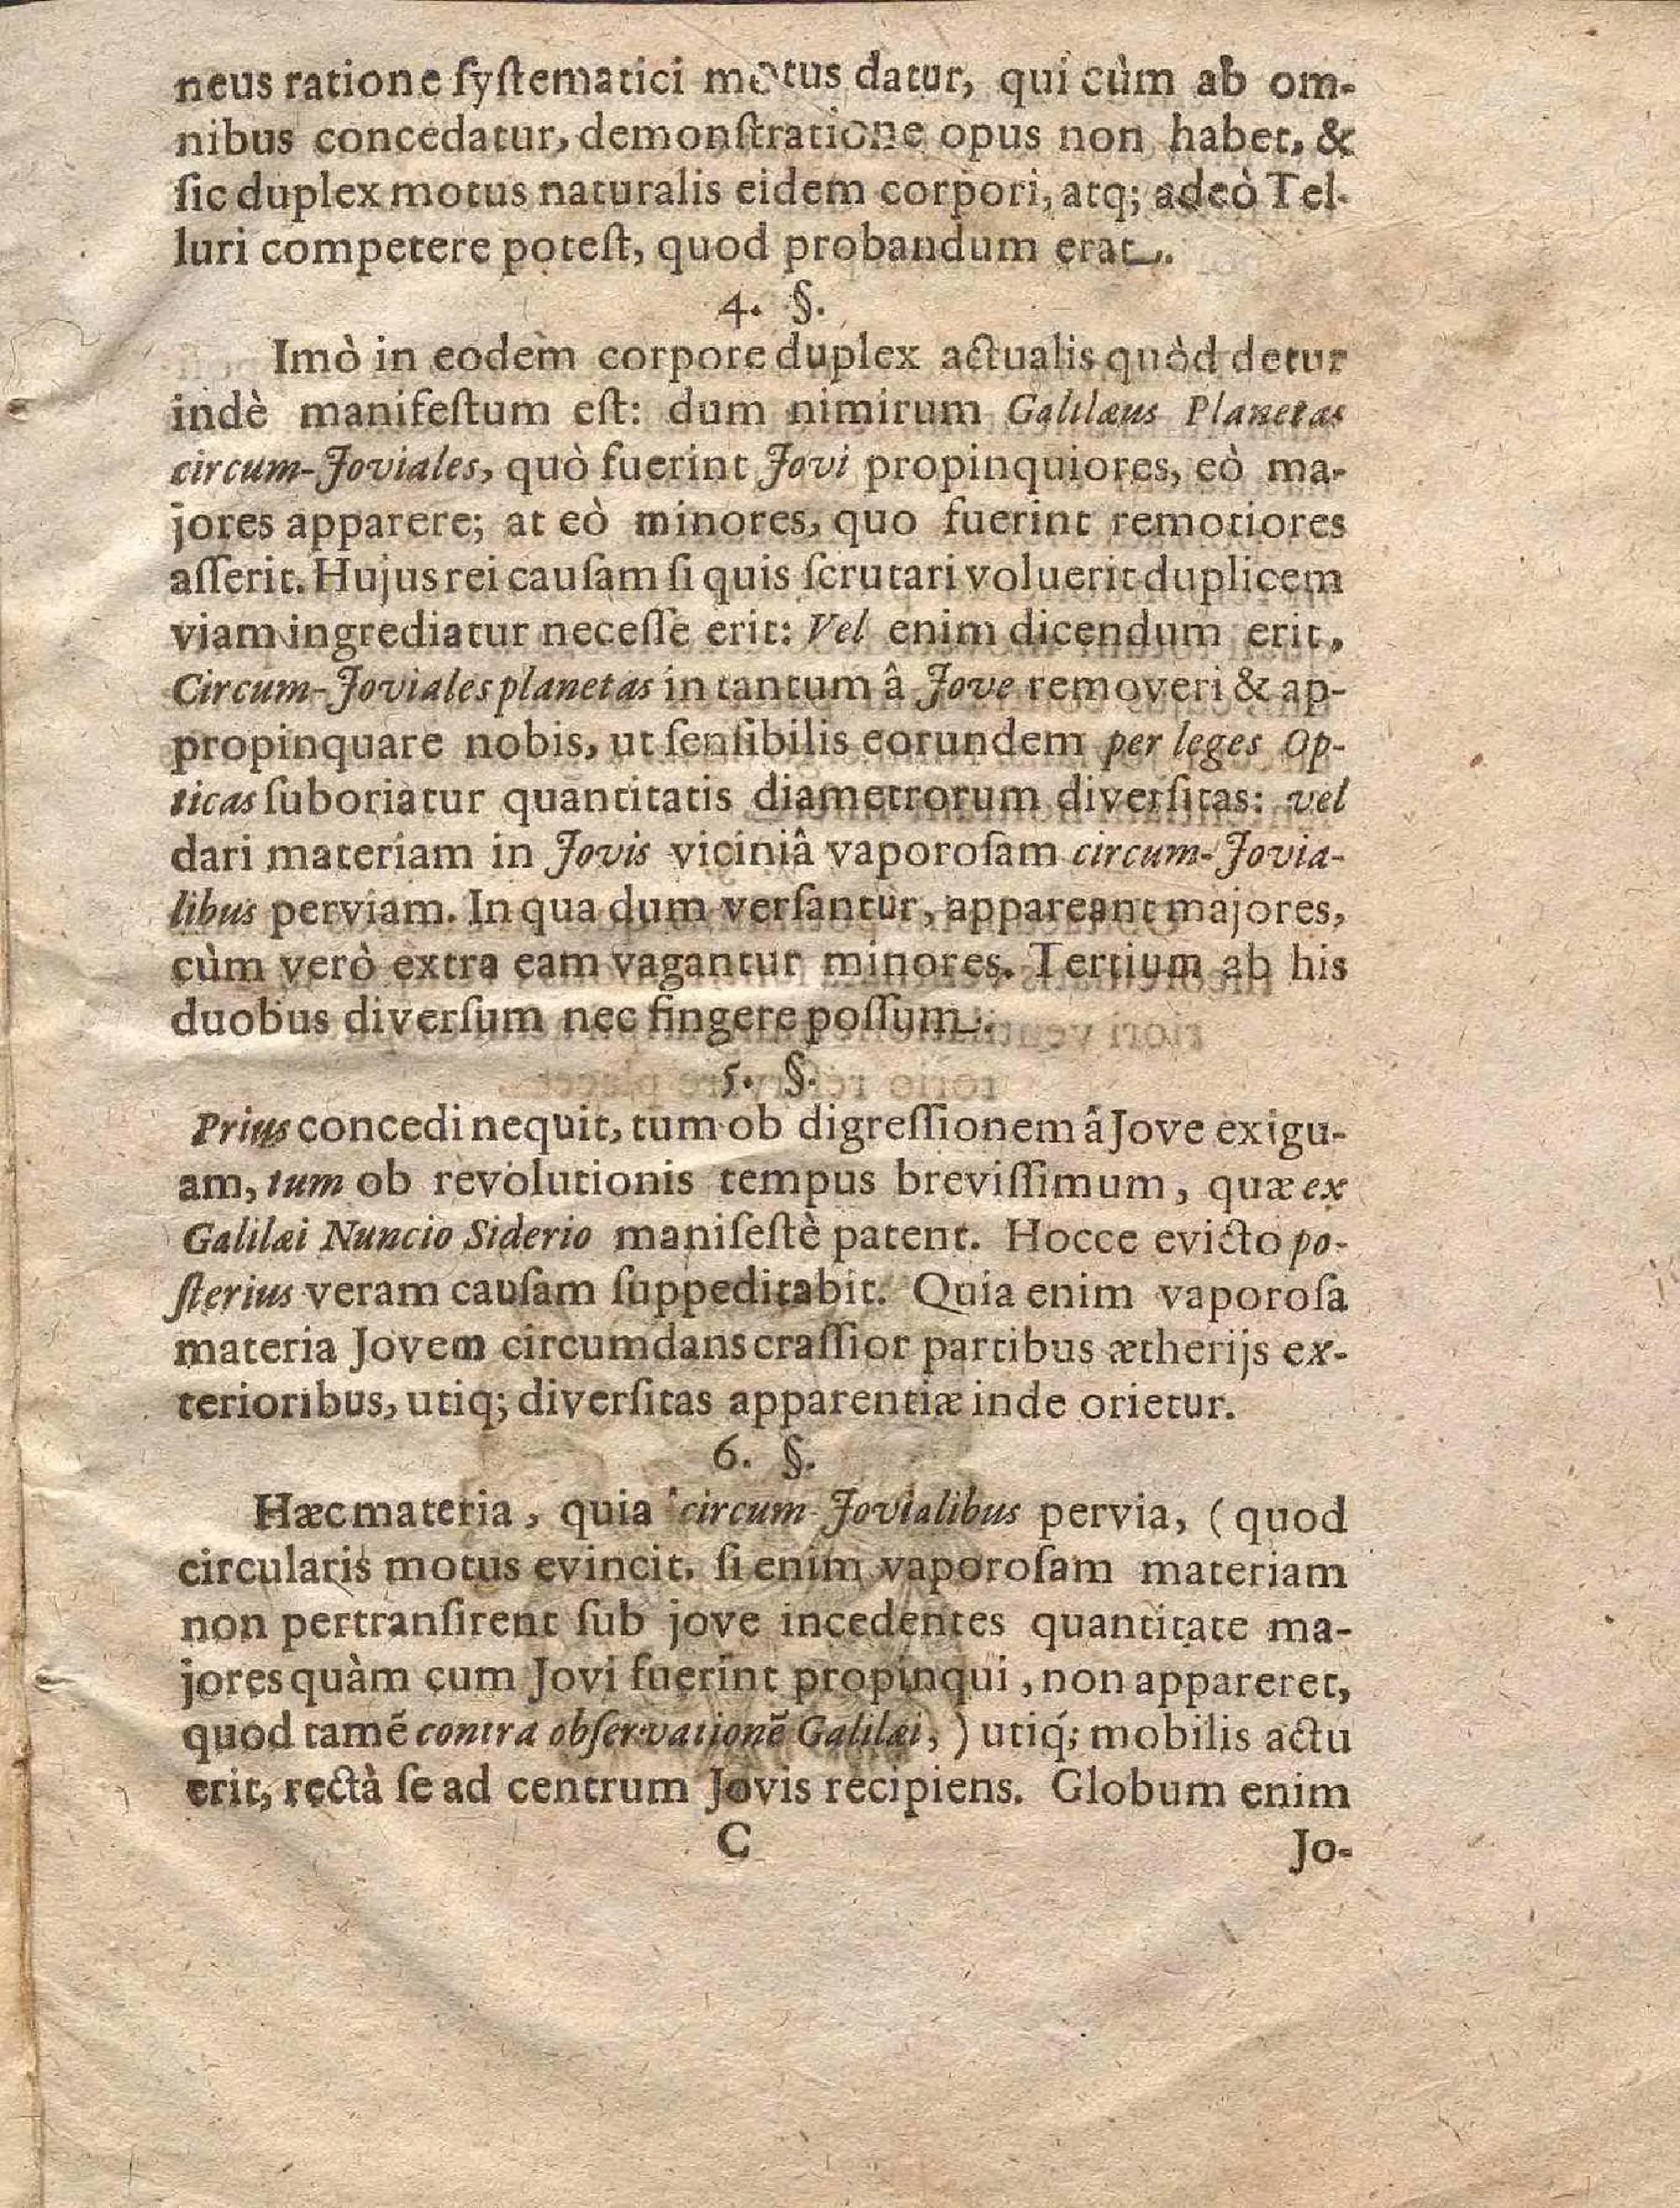 neus ratione ſyſtematici motus datur, qui cùm ab om-
nibus concedatur, demonſtratione opus non habet, &
ſic duplex motus naturalis eidem corpori, atq; adeò Tel-
luri competere poteſt, quod probandum erat.
4. §.
Imò in eodem corpore duplex actualis quòd detur
indè manifeſtum eſt: dum nimirum Galilæus Planetas
circum-Joviales, quò fuerint Jovi propinquiores, eò ma-
jores apparere; at eò minores, quo fuerint remotiores
aſſerit. Hujus rei cauſam ſi quis ſcrutari voluerit duplicem
viam ingrediatur neceſſe erit: Vel enim dicendum erit,
Circum-Joviales planetas in tantum â Jove removeri & ap-
propinquare nobis, ut ſenſibilis eorundem per leges Op-
ticas ſuboriatur quantitatis diametrorum diverſitas: vel
dari materiam in Jovis viciniâ vaporoſam circum-Jovia-
libus perviam. In qua dum verſantur, appareant majores,
cùm verò extra eam vagantur minores. Tertium ab his
duobus diverſum nec fingere poſſum.
5. §.
Prius concedi nequit, tum ob digreſſionem â Jove exigu-
am, tum ob revolutionis tempus breviſſimum, quæ ex
Galilæi Nuncio Siderio maniſeſtè patent. Hocce evicto po-
ſterius veram cauſam ſuppeditabit. Quia enim vaporoſa
materia Jovem circumdans craſſior partibus ætherijs ex-
terioribus, utiq; diverſitas apparentiæ inde orietur.
6. §.
Hæc materia, quia circum-Jovialibus pervia, (quod
circularis motus evincit. ſi enim vaporoſam materiam
non pertranſirent ſub jove incedentes quantitate ma-
jores quàm cum Jovi fuerint propinqui, non appareret,
quod tamẽ contra obſervationẽ Galilæi,) utiq́; mobilis actu
erit, rectà ſe ad centrum Jovis recipiens. Globum enim
C Jo-